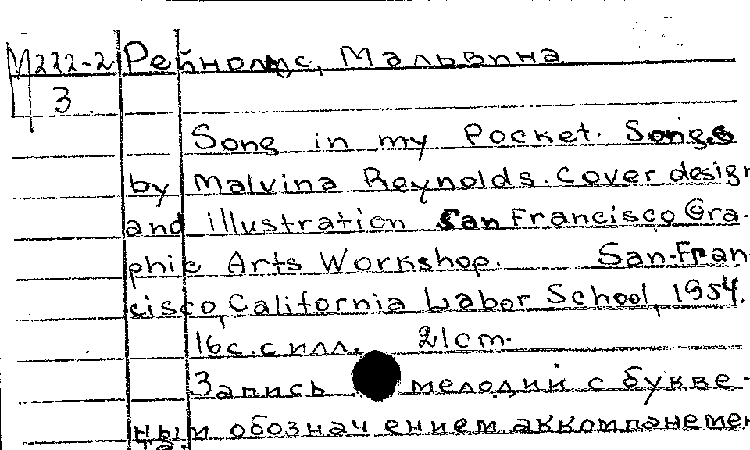 М222-2 Рейнолдс, Мальвина
3
Song in my Pocket. Songs
by Malvina Reynolds. Cover design
and illustration San Francisco Gra-
phic Arts Workshop. San-Fran
cisco, California Labor School, 1954.
16с. с илл. 21cm.
Запись мелодий с букве-
ным обозначением аккомпанемен
та.